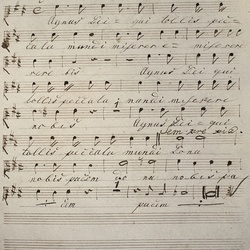 Agnus Dei = qui tollis pec=
cata mundi miserere = misere
rere bis Agnus Dei qui
tollis peccata mundi miserere
nobis Agnus Dei = qui
sem pre più
tollis peccata mundi Dona
nobis pacem no bis pa
cem pacem